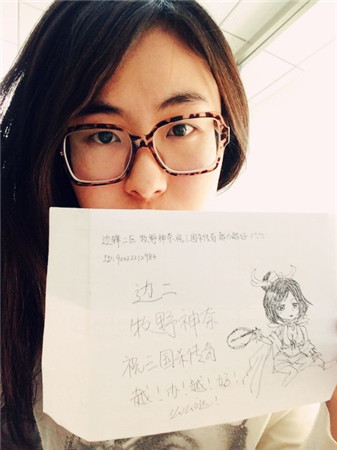 边锋二区 牧野神奈 祝三国杀传奇越办越好
ID:
边二
牧野神奈
祝三国杀传奇
越！办！越！好！